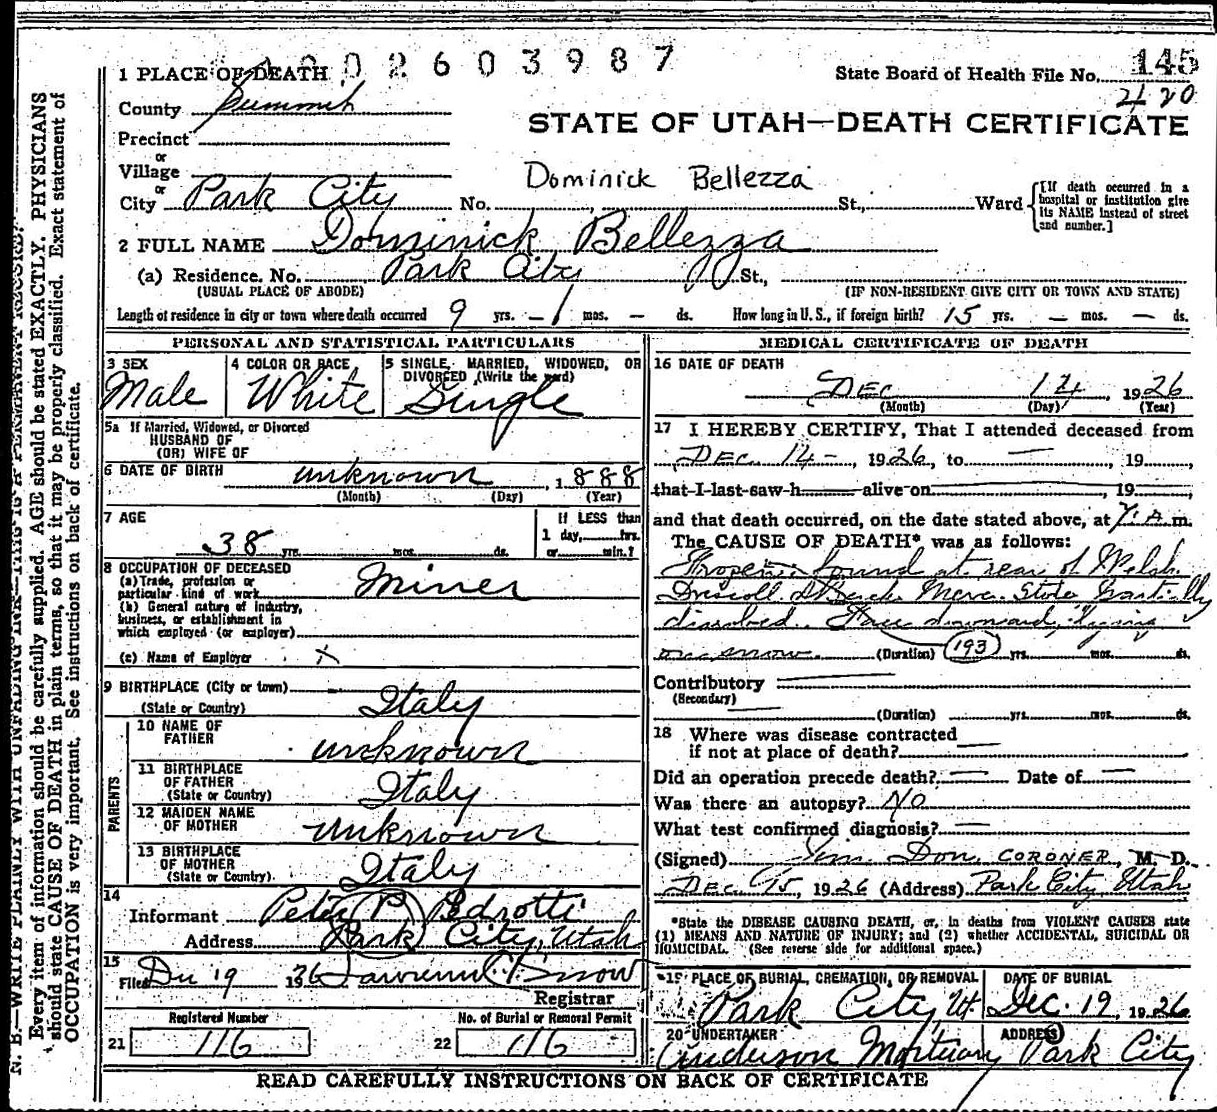 1 PLACE OF DEATH 002603987
State Board of Health File No. 145
County Summit
420
Precinct
STATE OF UTAH—DEATH CERTIFICATE
or
Village
Dominick Bellezza
or
City Park City No. St., Ward
[If death occurred in a hospital or institution give its NAME instead of street and number.]
2 FULL NAME Dominick Bellezza
(a) Residence. No. Park City St.,
(USUAL PLACE OF ABODE) (IF NON-RESIDENT GIVE CITY OR TOWN AND STATE)
Length of residence in city or town where death occurred 9 yrs. – mos. – ds. How long in U. S., if foreign birth? 15 yrs. – mos. – ds.
PERSONAL AND STATISTICAL PARTICULARS
3 SEX
Male
4 COLOR OR RACE
White
5 SINGLE, MARRIED, WIDOWED, OR
DIVORCED (Write the word)
Single
5a If Married, Widowed, or Divorced
HUSBAND OF
(OR) WIFE OF
6 DATE OF BIRTH unknown, 1888
(Month) (Day) (Year)
7 AGE
38 yrs. mos. ds.
If LESS than
1 day, hrs.
or min.?
8 OCCUPATION OF DECEASED
(a) Trade, profession or
particular kind of work Miner
(b) General nature of industry,
business, or establishment in
which employed (or employer)
(c) Name of Employer x
9 BIRTHPLACE (City or town)
(State or Country) Italy
PARENTS
10 NAME OF
FATHER unknown
11 BIRTHPLACE
OF FATHER
(State or Country) Italy
12 MAIDEN NAME
OF MOTHER unknown
13 BIRTHPLACE
OF MOTHER
(State or Country) Italy
14
Informant Peter P. Pedrotti
Address Park City, Utah
15
Filed Dec 19 1926 Snow
Registrar
Registered Number
No. of Burial or Removal Permit
21 116
22 116
MEDICAL CERTIFICATE OF DEATH
16 DATE OF DEATH
Dec 14, 1926
(Month) (Day) (Year)
17 I HEREBY CERTIFY, That I attended deceased from
Dec. 14–, 1926, to —, 19
that I last saw h alive on, 19
and that death occurred, on the date stated above, at 7. A. m.
The CAUSE OF DEATH* was as follows:
Frozen. found at rear of Welsh
Driscoll & Buck Merc. Store Partially
Face downward, lying
on snow. (Duration) 193 yrs. mos. ds.
Contributory
(Secondary)
(Duration) yrs. mos. ds.
18 Where was disease contracted
if not at place of death?
Did an operation precede death? — Date of —
Was there an autopsy? No
What test confirmed diagnosis? —
(Signed) Jim Don, CORONER, M. D.
Dec. 15, 1926 (Address) Park City, Utah
*State the DISEASE CAUSING DEATH, or, in deaths from VIOLENT CAUSES state
(1) MEANS AND NATURE OF INJURY; and (2) whether ACCIDENTAL, SUICIDAL OR
HOMICIDAL. (See reverse side for additional space.)
19 PLACE OF BURIAL, CREMATION, OR REMOVAL
Park City, Ut.
DATE OF BURIAL
Dec. 19, 1926
20 UNDERTAKER
Anderson Mortuary
ADDRESS
Park City
READ CAREFULLY INSTRUCTIONS ON BACK OF CERTIFICATE
N. B.—WRITE PLAINLY WITH UNFADING INK—THIS IS A PERMANENT RECORD.
Every item of information should be carefully supplied. AGE should be stated EXACTLY. PHYSICIANS
should state CAUSE OF DEATH in plain terms, so that it may be properly classified. Exact statement of
OCCUPATION is very important. See instructions on back of certificate.